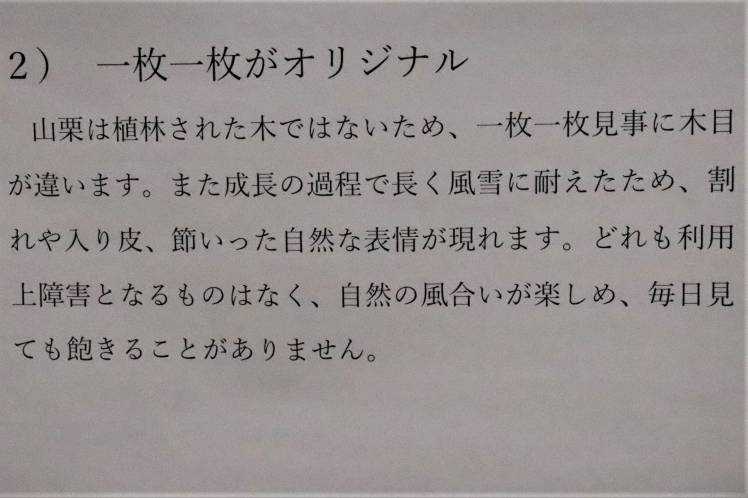 2） 一枚一枚がオリジナル
山栗は植林された木ではないため、一枚一枚見事に木目
が違います。また成長の過程で長く風雪に耐えたため、割
れや入り皮、節いった自然な表情が現れます。どれも利用
上障害となるものはなく、自然の風合いが楽しめ、毎日見
ても飽きることがありません。